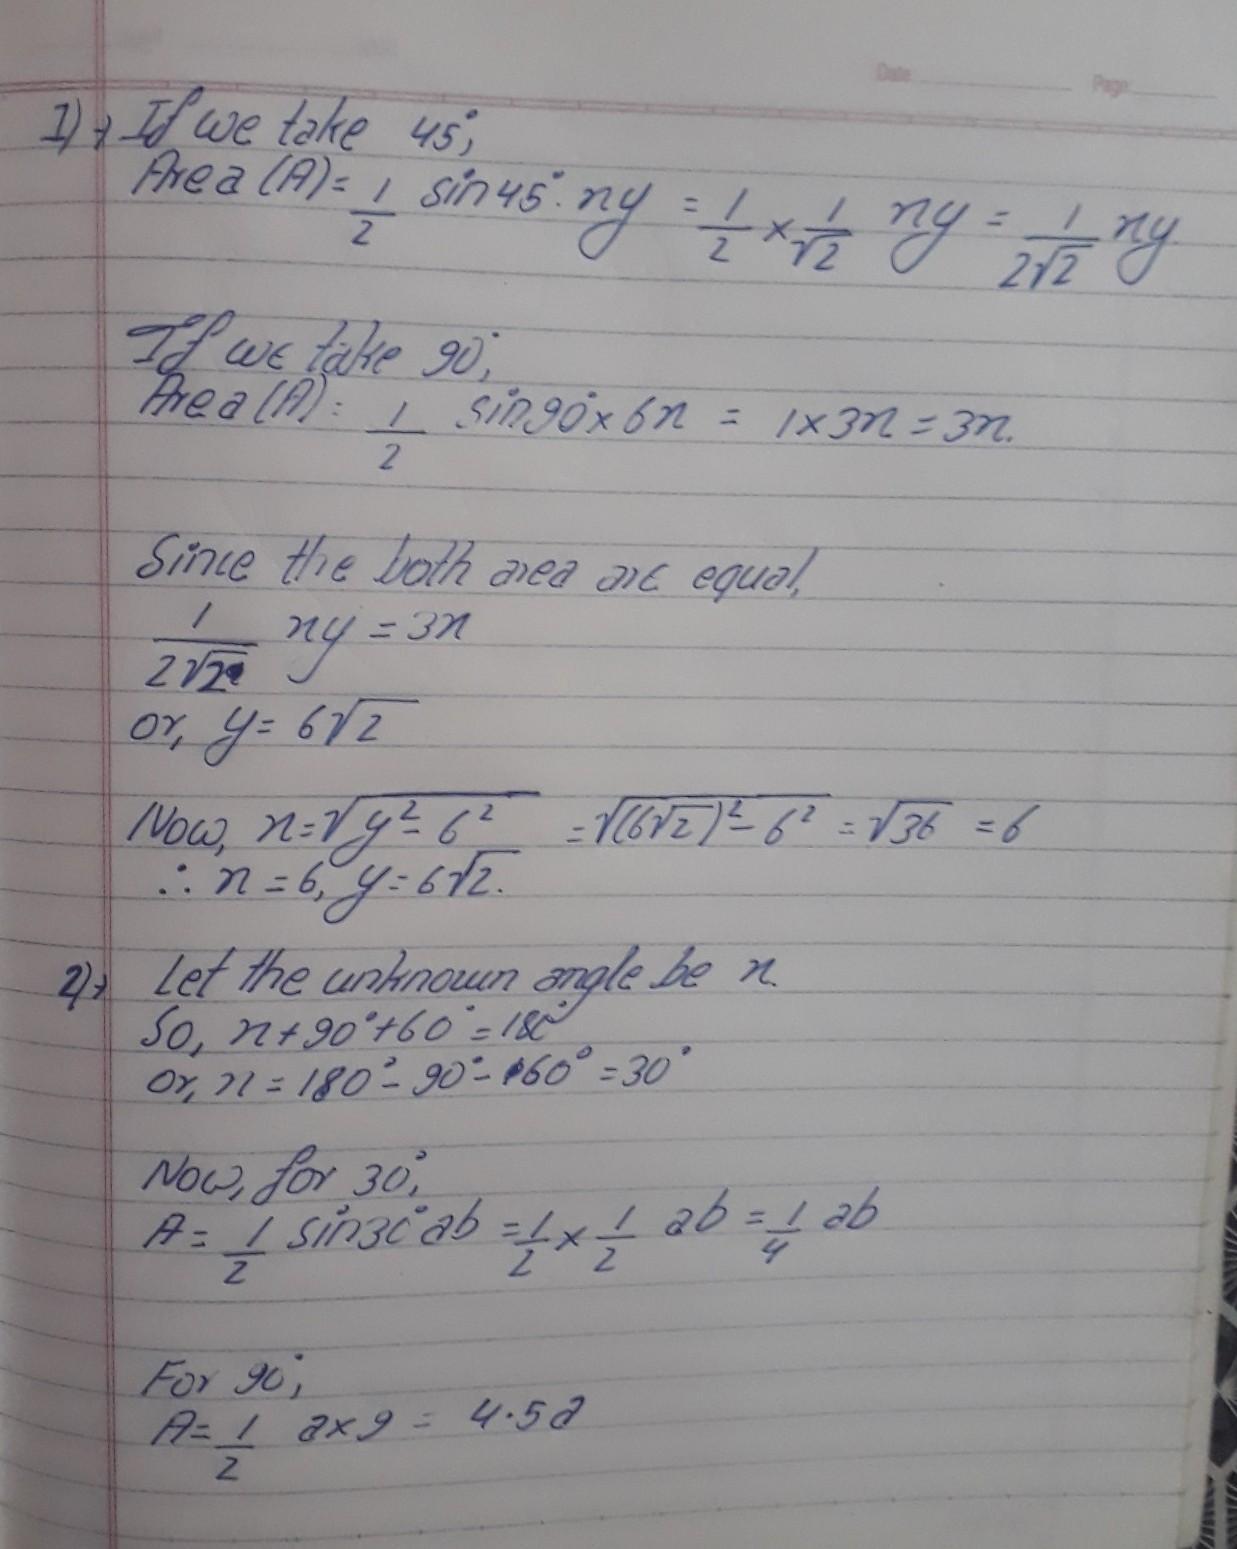 Date Page
1)→ If we take 45°,
Area (A) = 1/2 sin45°. xy = 1/2 × 1/√2 xy = 1/2√2 xy
If we take 90°,
Area (A) = 1/2 sin90° × 6x = 1×3x = 3x.
Since the both area are equal,
1/2√2 xy = 3x
or, y = 6√2
Now, x = √y²-6² = √(6√2)²-6² = √36 = 6
∴ x = 6, y = 6√2.
2)→ Let the unknown angle be x.
So, x + 90° + 60° = 180°
or, x = 180° - 90° - 60° = 30°
Now, for 30°,
A = 1/2 sin30° ab = 1/2 × 1/2 ab = 1/4 ab
For 90°,
A = 1/2 a×9 = 4.5a